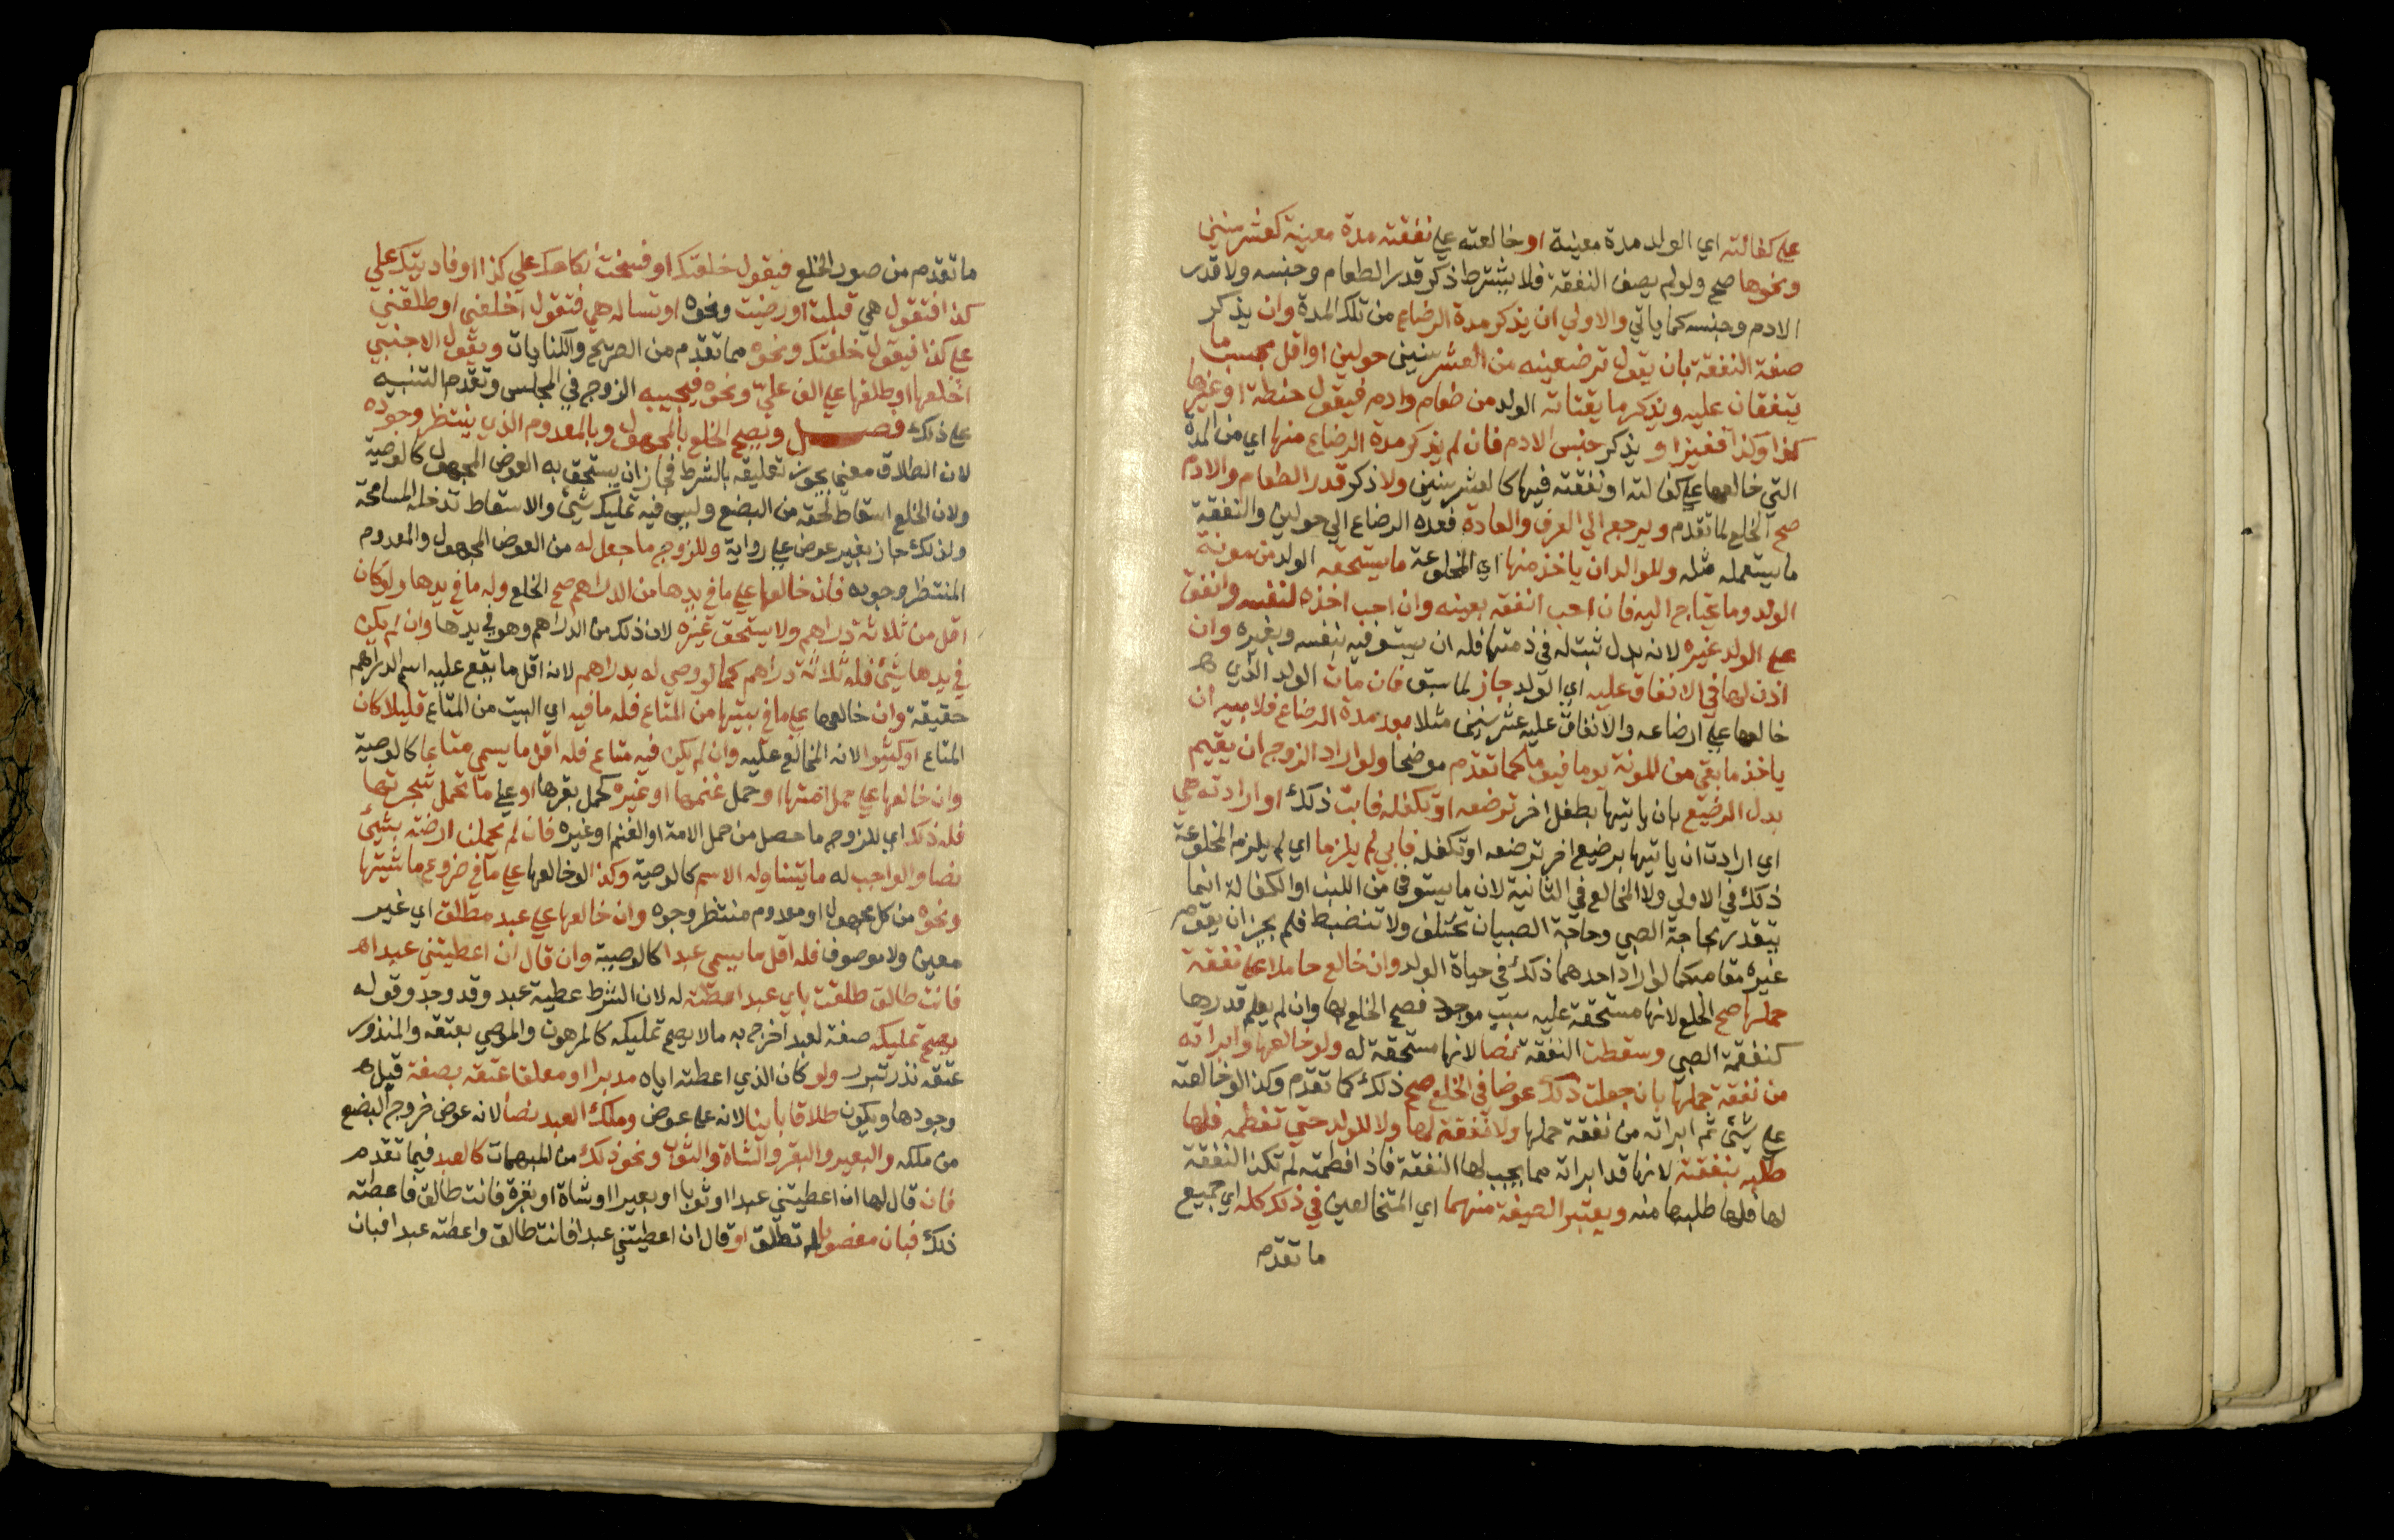 علي كفالته اي الولد مدة معينة او خالعته علي نفقته مدة معينة كعشر سنين
ونحوها صح ولو لم يصف النفقة فلا يشترط ذكر قدر الطعام وجنسه ولا قدر
الادم وجنسه كما ياتي والاولي ان يذكر مدة الرضاع من تلك المدة وان يذكر
صفة النفقة بان يقول ترضعينه من العشر سنين حولين او اقل بحسب ما
يتفقان عليه ويذكر ما يقتاته الولد من طعام وادم فيقول حنطة او غيرها
كذا وكذا قفيزا و يذكر جنس الادم فان لم يذكر مدة الرضاع منها اي من المدة
التي خالعها علي كفالته او نفقته فيها كالعشر سنين ولا ذكر قدر الطعام والادم
صح الخلع لما تقدم ويرجع الي العرف والعادة فمدة الرضاع الي حولين والنفقة
ما يستعمله مثله وللوالد ان ياخذ منها اي المخلوعة ما يستحقه الولد من مونة
الولد وما يحتاج اليه فان احب انفقه بعينه وان احب اخذه لنفسه وانفق
علي الولد غيره لانه بدل ثبت له في ذمتها فله ان يستوفيه بنفسه وبغيره وان
اذن لها في الانفاق عليه اي الولد جاز لما سبق فان مات الولد الذي
خالعها علي ارضاعه والانفاق عليه عشر سنين مثلا بعد مدة الرضاع فلابيه ان
ياخذ ما بقي من المونة يوما فيوما كما تقدم موضحا ولو اراد الزوج ان يقيم
بدل الرضيع بان ياتيها بطفل اخر ترضعه او تكفله فابت ذلك او ارادته هي
اي ارادت ان ياتيها برضيع اخر ترضعه او تكفله فابي لم يلزما اي لم يلزم المخلوعة
ذلك في الاولي ولا المخالع في الثانية لان ما يستوفي من اللبن او الكفالة انما
يتقدر بحاجة الصبي وحاجة الصبيان تختلف ولا تنضبط فلم يجز ان يقوم
غيره مقامه كما لو اراد احدهما ذلك في حياة الولد وان خالع حاملا علي نفقة
حملها صح الخلع لانها مستحقة عليه بسبب موجود فصح الخلع بها وان لم يعلم قدرها
كنفقة الصبي وسقطت النفقة نصا لانها مستحقة له ولو خالعها وابراته
من نفقة حملها بان جعلت ذلك عوضا في الخلع صح ذلك كما تقدم وكذا لو خالعته
علي شيء ثم ابراته من نفقة حملها ولا نفقة لها ولا للولد حتي تفطمه فلها
طلبه بنفقته لانها قد ابراته مما يجب لها النفقة فاذا فطمته لم تكن النفقة
لها فلها طلبها منه ويعتبر الصيغة منهما اي المتخالعين في ذلك كله اي جميع
ما تقدم
ما تقدم من صور الخلع فيقول خلعتك او فسخت نكاحك علي كذا او فاديتك علي
كذا فتقول هي قبلت او رضيت ونحوه او تساله هي فتقول اخلعني او طلقني
علي كذا فيقول خلعتك ونحوه مما تقدم من الصريح والكنايات ويقول الاجنبي
اخلعها او طلقها علي الف علي ونحوه فيجيبه الزوج في المجلس وتقدم التنبيه
علي ذلك فصل ويصح الخلع بالمجهول وبالمعدوم الذي ينتظر وجوده
لان الطلاق معني يجوز تعليقه بالشرط فجاز ان يستحق به العوض المجهول كالوصية
ولان الخلع اسقاط لحقه من البضع وليس فيه تمليك شيء والاسقاط تدخله المسامحة
ولذلك جاز بغير عوض علي رواية وللزوج ما جعل له من العوض المجهول والمعدوم
المنتظر وجوده فان خالعها علي ما في يدها من الدراهم صح الخلع وله ما في يدها ولو كان
اقل من ثلاثة دراهم ولا يستحق غيره لان ذلك من الدراهم وهو في يدها وان لم يكن
في يدها شيء فله ثلاثة دراهم كما لو وصي له بدراهم لانه اقل ما يقع عليه اسم الدراهم
حقيقة وان خالعها علي ما في بيتها من المتاع فله ما فيه اي البيت من المتاع قليلا كان
المتاع او كثيرا لانه المخالع عليه وان لم يكن فيه متاع فله اقل ما يسمي متاعا كالوصية
وان خالعها علي حمل امتها او حمل غنمها او غيره كحمل بقرها او علي ما تحمل شجرتها
فله ذلك اي للزوج ما حصل من حمل الامة او الغنم او غيره فان لم يحملن ارضته بشيء
نصا والواجب له ما يتناوله الاسم كالوصية وكذا لو خالعها علي ما في ضروع ماشيتها
ونحوه من كل مجهول او معدوم منتظر وجوده وان خالعها علي عبد مطلق اي غير
معين ولا موصوف فله اقل ما يسمي عبدا كالوصية وان قال ان اعطيتني عبدا
فانت طالق طلقت باي عبد اعطته له لان الشرط عطية عبد وقد وجد وقوله
يصح تمليكه صفة لعبد اخرج به ما لا يصح تمليكه كالمرهون والموصي بعتقه والمنذور
عتقه نذر تبرر ولو كان الذي اعطته اياه مدبرا او معلقا عتقه بصفة قبل
وجودها ويكون طلاقا باينا لانه علي عوض وملك العبد نصا لانه عوض خروج البضع
من ملكه والبعير والبقر والشاة والثوب ونحو ذلك من المبهمات كالعبد فيما تقدم
فان قال لها ان اعطيتني عبدا او ثوبا او بعيرا او شاة او بقرة فانت طالق فاعطته
ذلك فبان مغصوبا لم تطلق او قال ان اعطيتني عبدا فانت طالق واعطته عبدا فبان